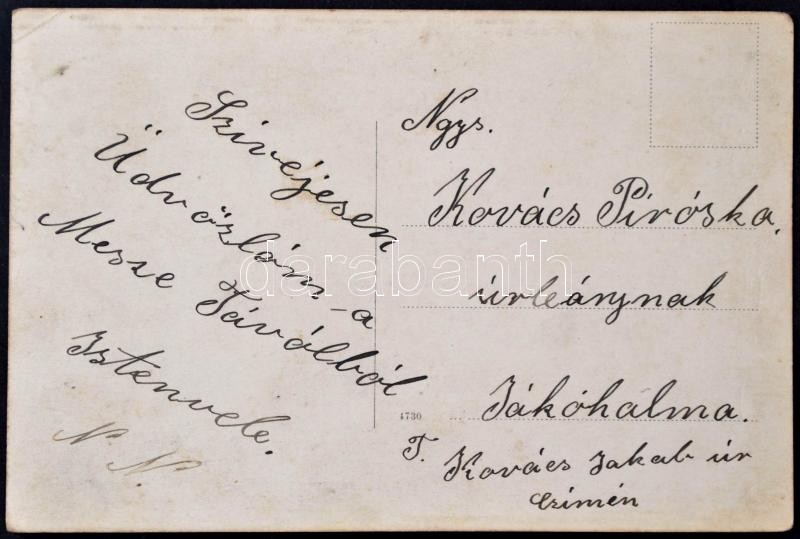 Szivéjesen
Üdvözlöm a
Messe Távólból
Istenvele.
N. N.
Ngys.
Kovács Piróska.
úrleánynak
Jákóhalma.
T. Kovács Jakab úr
czimén
4730
darabanth